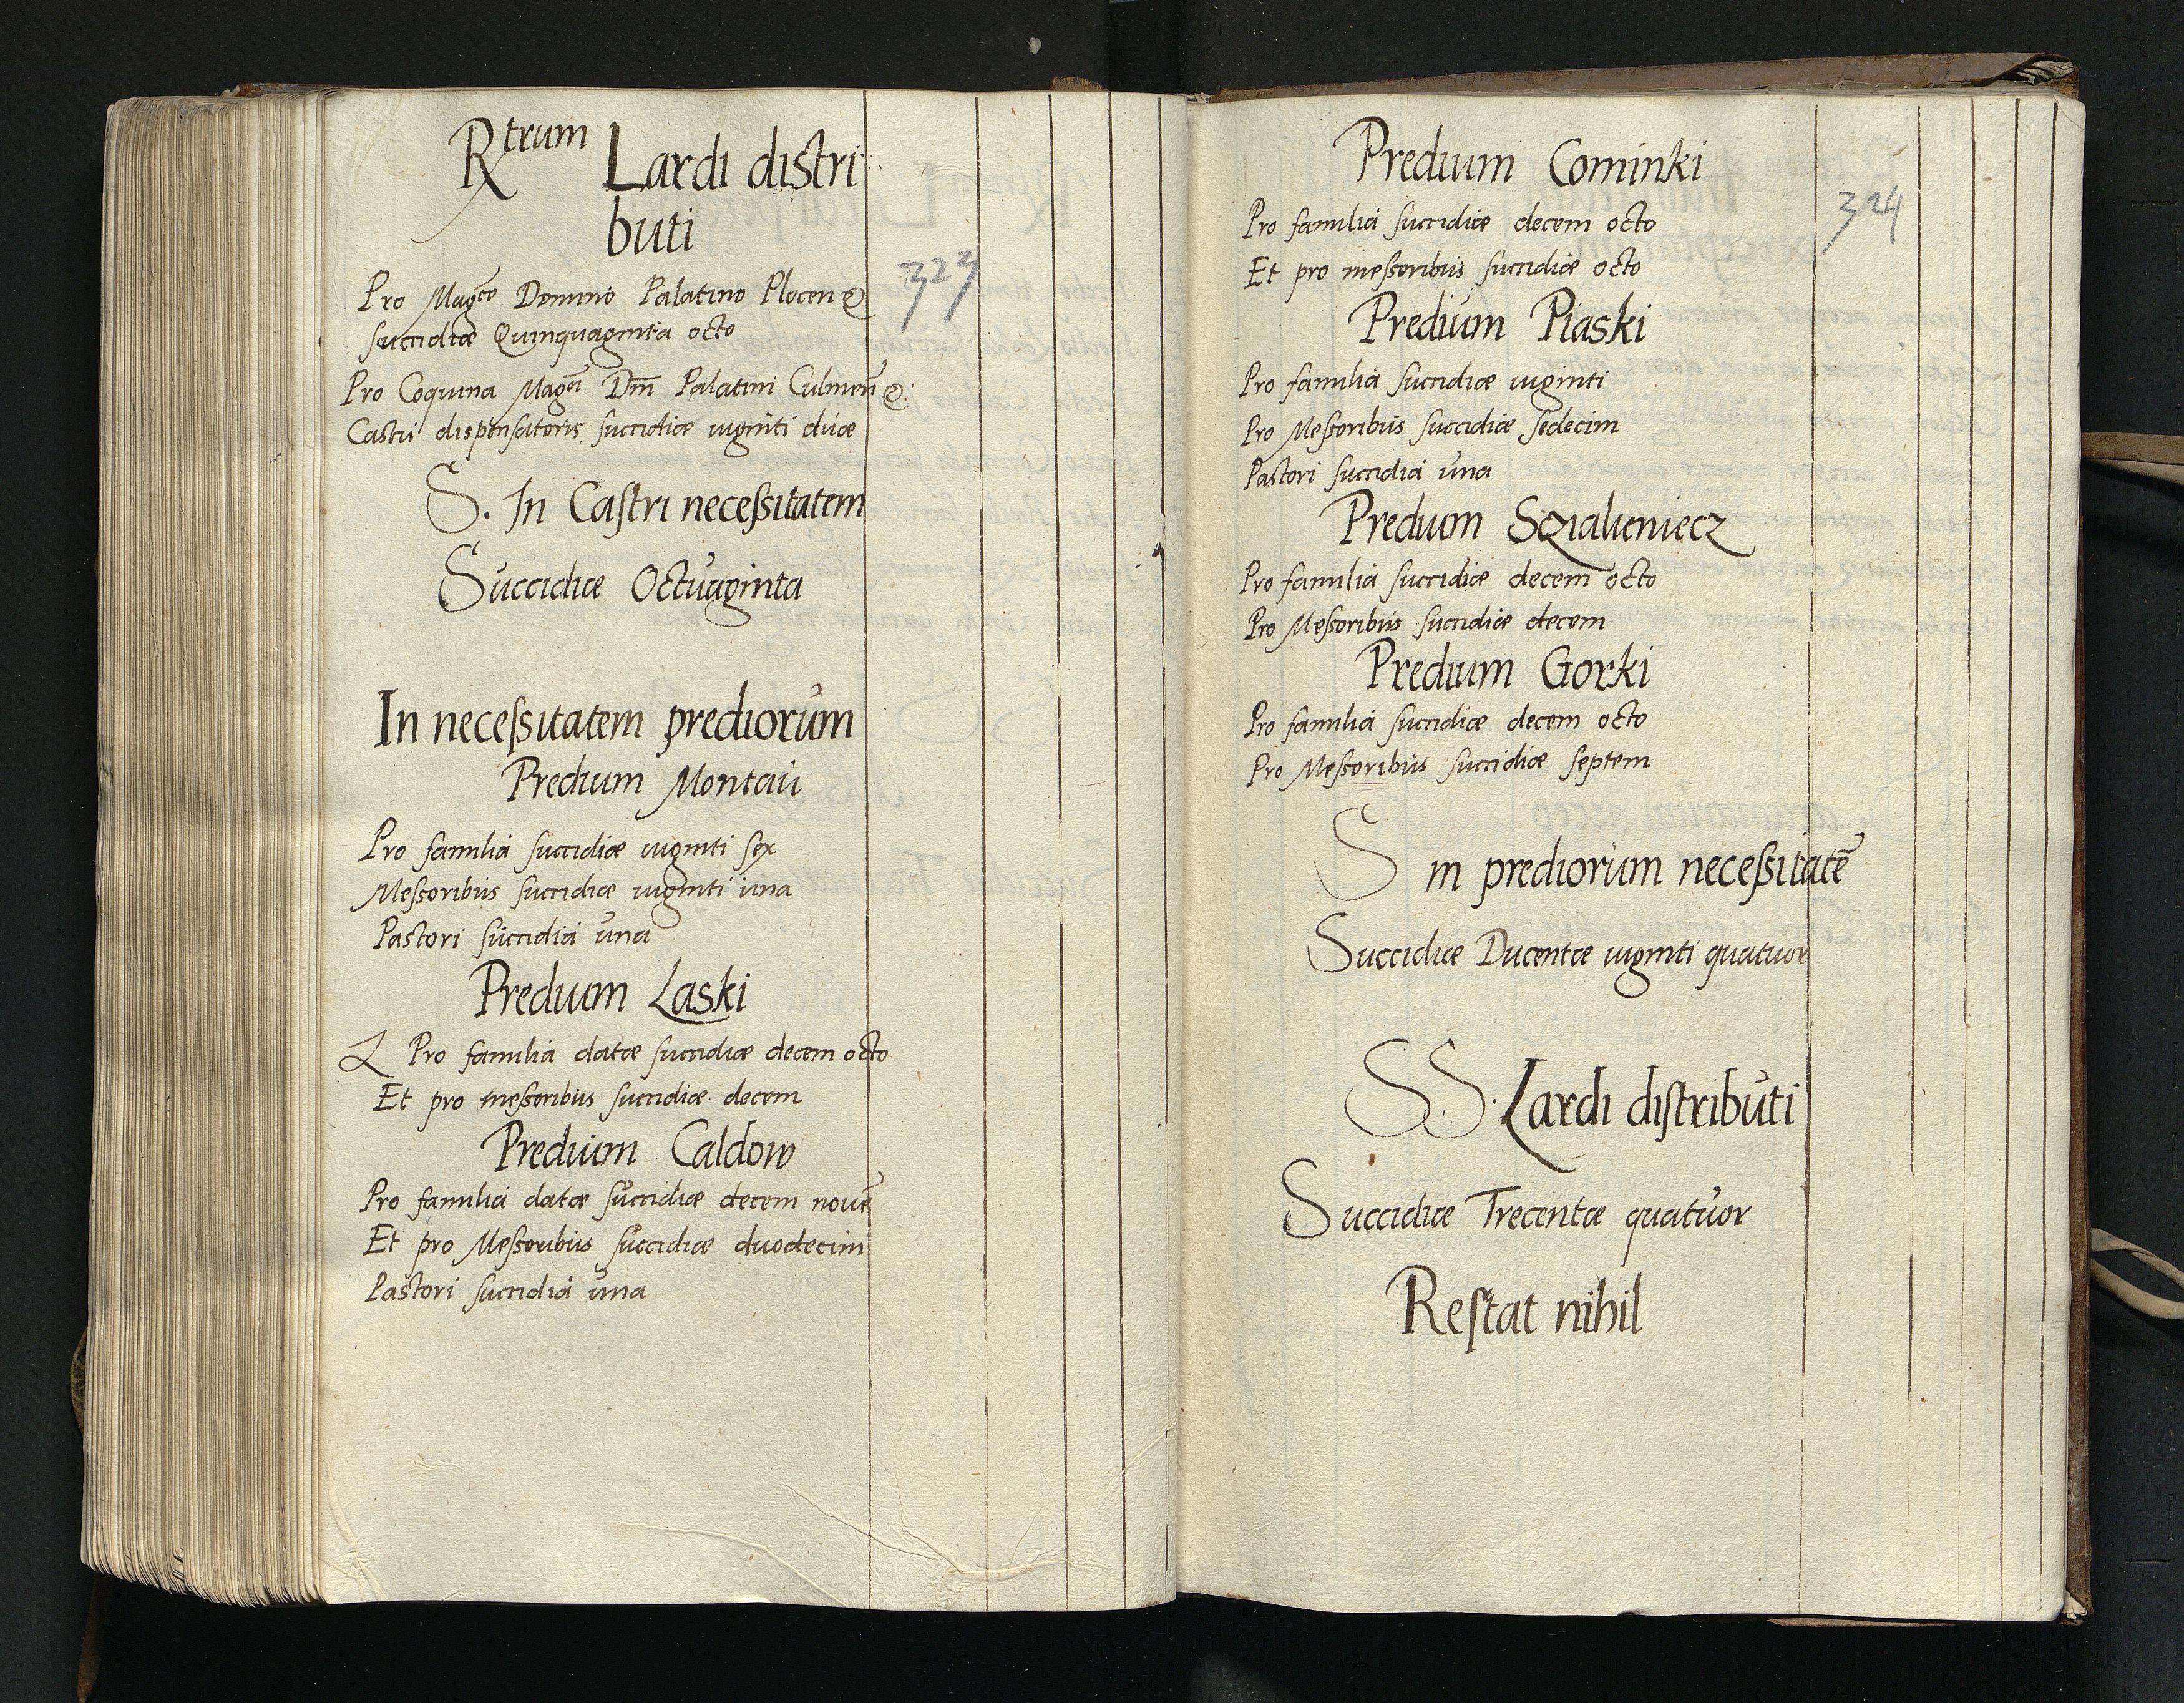 Rtrum Lardi distri
buti
323
Pro Magco Domino Palatino Plocen
succidiæ Quinquaginta octo
Pro Coquina Magci Dm̄ Palatini Culmen̄
Castri dispensatoris succidiæ viginti duæ
S. In Castri neceſsitatem
Succidiæ Octuaginta
In neceſsitatem prediorum
Predium Montau
Pro familia succidiæ viginti sex
Meſsoribus succidiæ viginti una
Pastori succidia una
Predium Laski
Pro familia datæ succidiæ decem octo
Et pro meſsoribus succidiæ decem
Predium Caldow
Pro familia datæ succidiæ decem novē
Et pro Meſsoribus succidiæ duodecim
Pastori succidia una
Predium Cominki
324
Pro familia succidiæ decem octo
Et pro meſsoribus succidiæ octo
Predium Piaski
Pro familia succidiæ viginti
Pro Meſsoribus succidiæ sedecim
Pastori succidia una
Predium Szialieniecz
Pro familia succidiæ decem octo
Pro Meſsoribus succidiæ decem
Predium Gorki
Pro familia succidiæ decem octo
Pro Meſsoribus succidiæ septem
S in prediorum neceſsitatē
Succidiæ Ducentæ viginti quatuor
SS. Lardi diſtributi
Succidiæ Trecentæ quatuor
Reſtat nihil